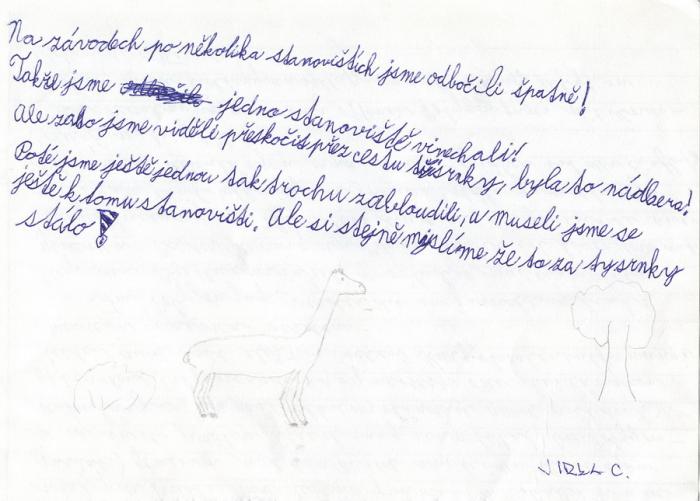 Na závodech po několika stanovištích jsme odbočili špatně!
Takže jsme jedno stanoviště vinechali!
Ale zato jsme viděli přeskočit přez cestu srnky, byla to nádhera!
Poté jsme ještě jednou tak trochu zabloudili, a museli jsme se
ještě k tomu stanovišti. Ale si stejně myslíme že to za ty srnky
stálo!
JIRKA C.